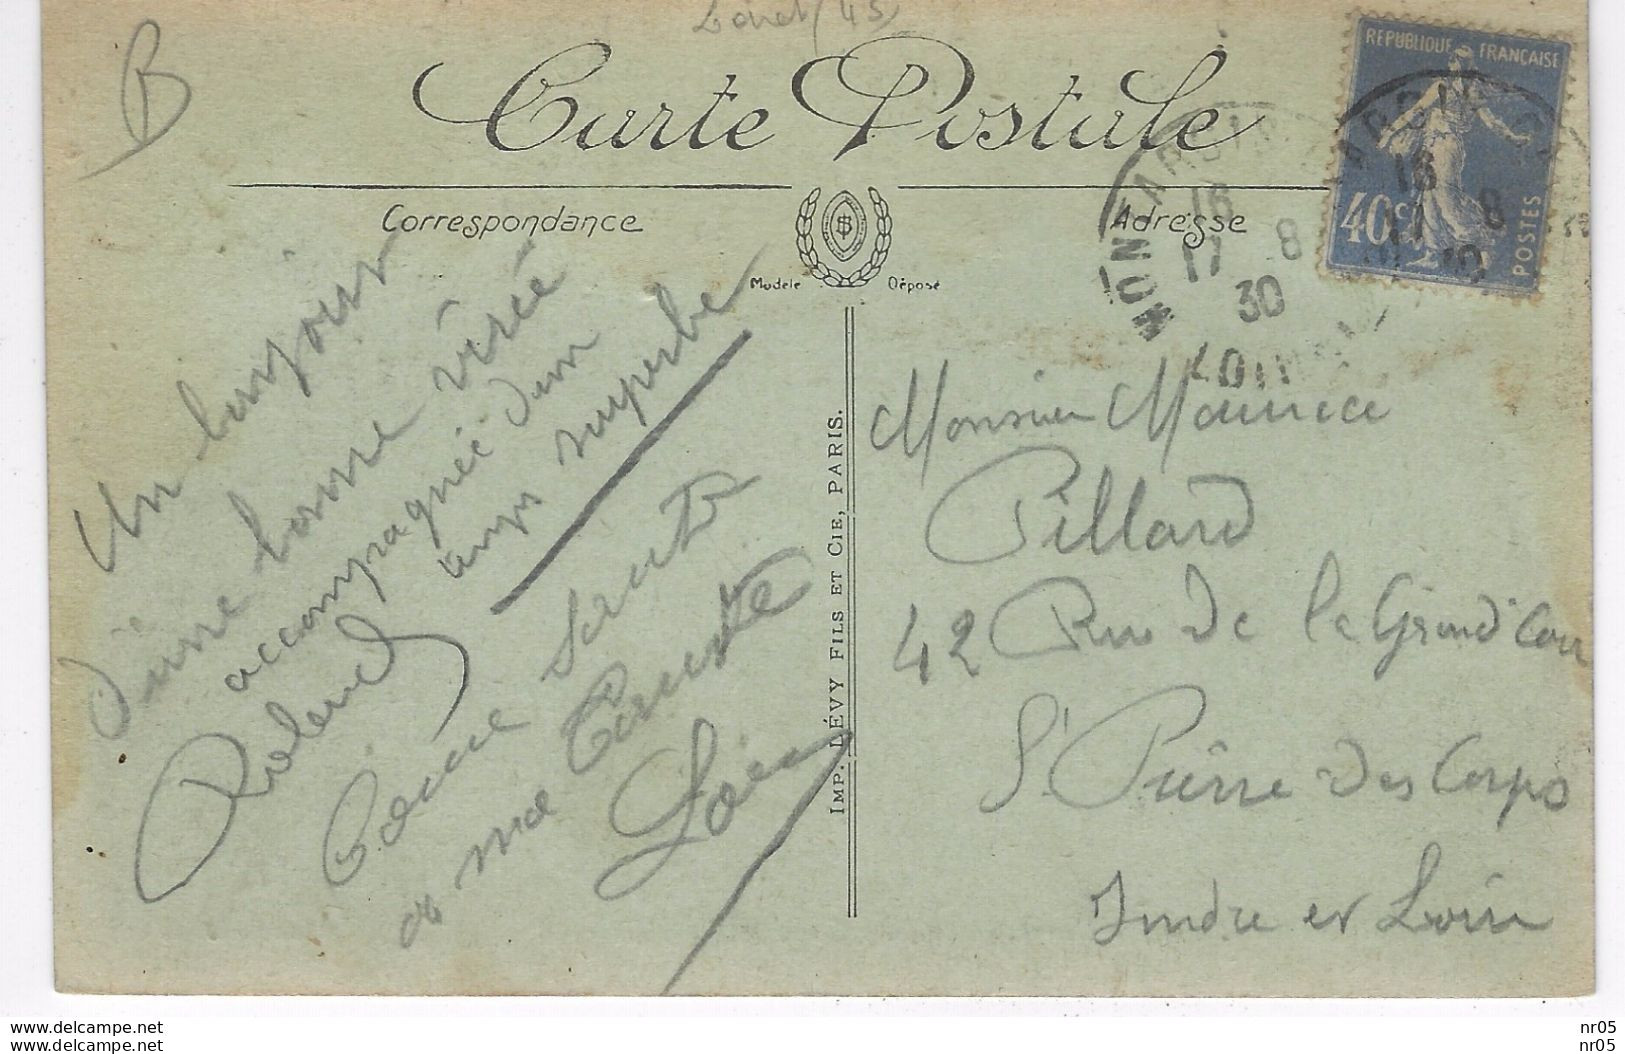 Loiret (45)
B
Carte Postale
Correspondance
Adresse
Modèle Déposé
REPUBLIQUE FRANÇAISE
40c
POSTES
MONTARGIS
16
17 8
30
LOIRET
Un bonjour
d'une bonne virée
accompagnée d'un
temps superbe
Roland
Bonne Santé
a ma
IMP. LÉVY FILS ET CIE, PARIS.
Monsieur Maurice
Pillard
42 Rue de la Grand'Cour
St Pierre des Corps
Indre et Loire
delcampe.net
delcampe.net
nr05
nr05